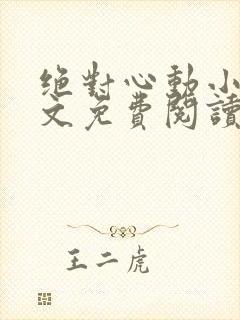 绝對心動小
文免費閱讀
王二虎